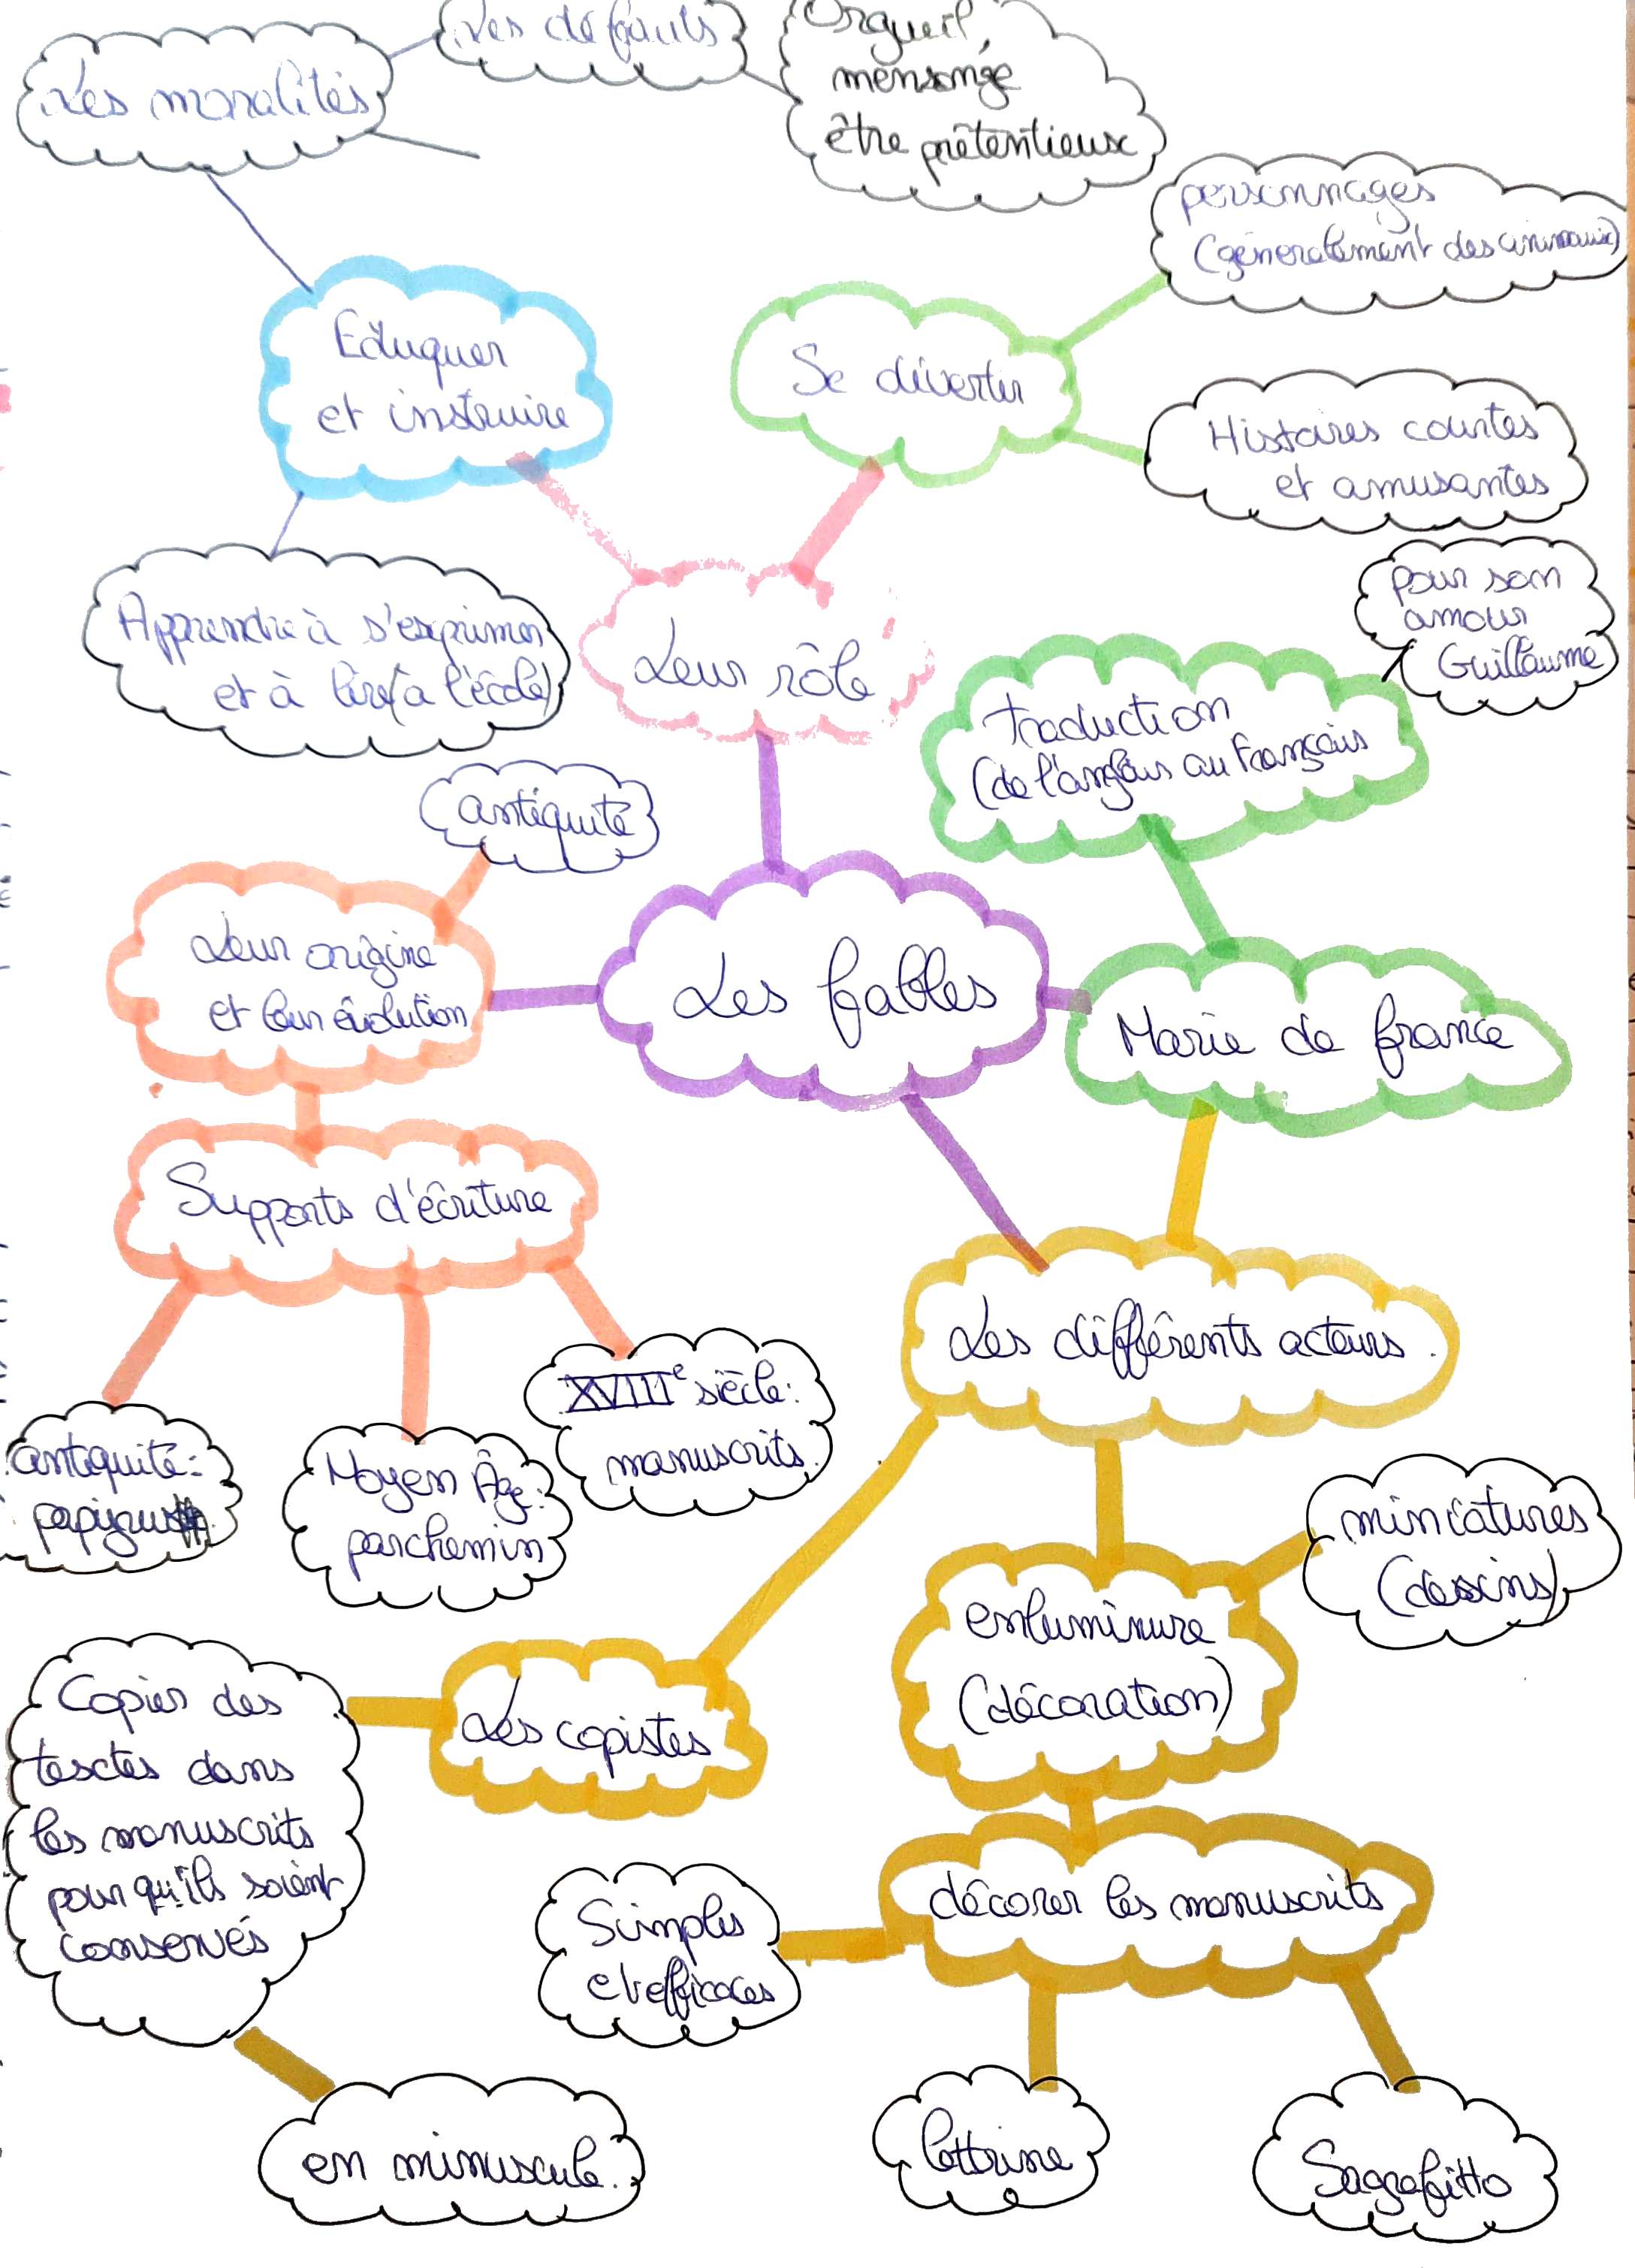 Les défauts
Orgueil,
mensonge
être prétentieux
Les moralités
personnages
(généralement des animaux)
Eduquer
et instruire
Se divertir
Histoires courtes
et amusantes
pour son
amour
Guillaume
Apprendre à s'exprimer
et à lire (à l'école)
Leur rôle
traduction
(de l'anglais au Français
antiquité
Leur origine
et leur évolution
Les fables
Marie de france
Supports d'écriture
Les différents acteurs.
XVIIIe siècle:
manuscrits.
antiquité:
papyrus
Moyen Âge:
parchemin
miniatures
(dessins)
enluminure
(décoration)
Les copistes
Copier des
textes dans
les manuscrits
pour qu'ils soient
conservés
décorer les manuscrits
Simples
et efficaces
en minuscule.
lettrine
Sagrafitto